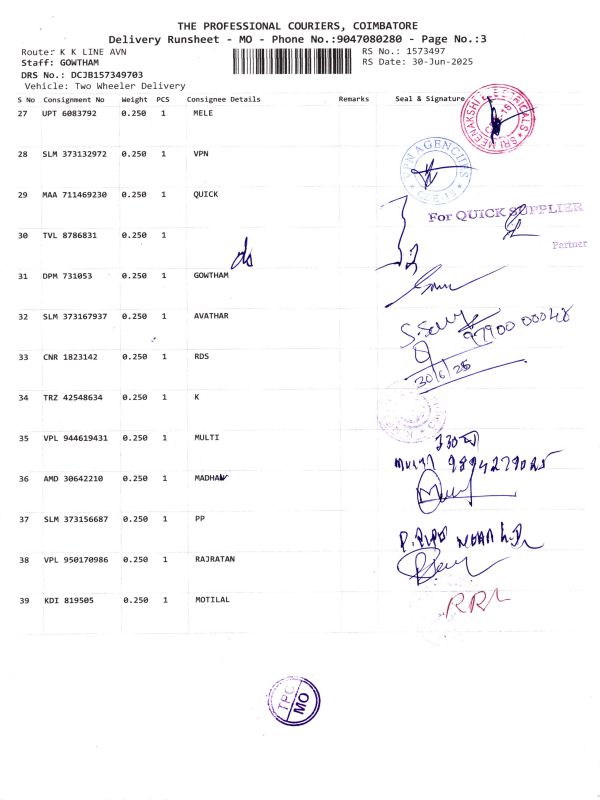 THE PROFESSIONAL COURIERS, COIMBATORE
Delivery Runsheet - MO - Phone No.:9047080280 - Page No.:3
Route: K K LINE AVN RS No.: 1573497
Staff: GOWTHAM RS Date: 30-Jun-2025
DRS No.: DCJB157349703
Vehicle: Two Wheeler Delivery
S No Consignment No Weight PCS Consignee Details Remarks Seal & Signature
27 UPT 6083792 0.250 1 MELE
SRI MEENAKSHI ELECTRICALS
28 SLM 373132972 0.250 1 VPN
VPN AGENCIES
29 MAA 711469230 0.250 1 QUICK
For QUICK SUPPLIER
30 TVL 8786831 0.250 1
Partner
31 DPM 731053 0.250 1 GOWTHAM
32 SLM 373167937 0.250 1 AVATHAR
97900 00048
33 CNR 1823142 0.250 1 RDS
30/6/25
34 TRZ 42548634 0.250 1 K
35 VPL 944619431 0.250 1 MULTI
330
9894279025
36 AMD 30642210 0.250 1 MADHAN
37 SLM 373156687 0.250 1 PP
38 VPL 950170986 0.250 1 RAJRATAN
39 KDI 819505 0.250 1 MOTILAL
TPC
MO